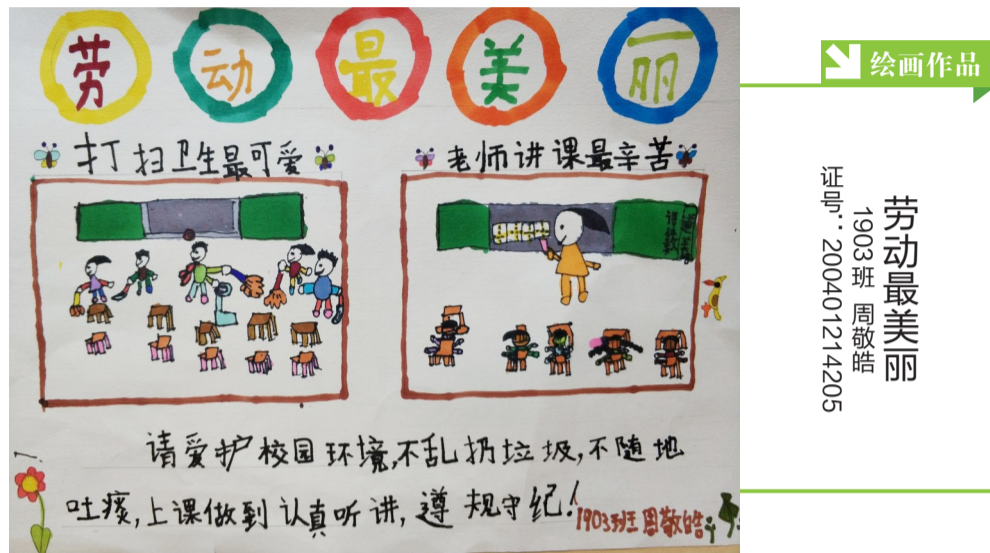 劳动最美丽
打扫卫生最可爱
老师讲课最辛苦
请爱护校园环境,不乱扔垃圾,不随地
吐痰,上课做到认真听讲,遵规守纪!
1903班 周敬皓
绘画作品
劳动最美丽
1903班 周敬皓
证号：20040121４205